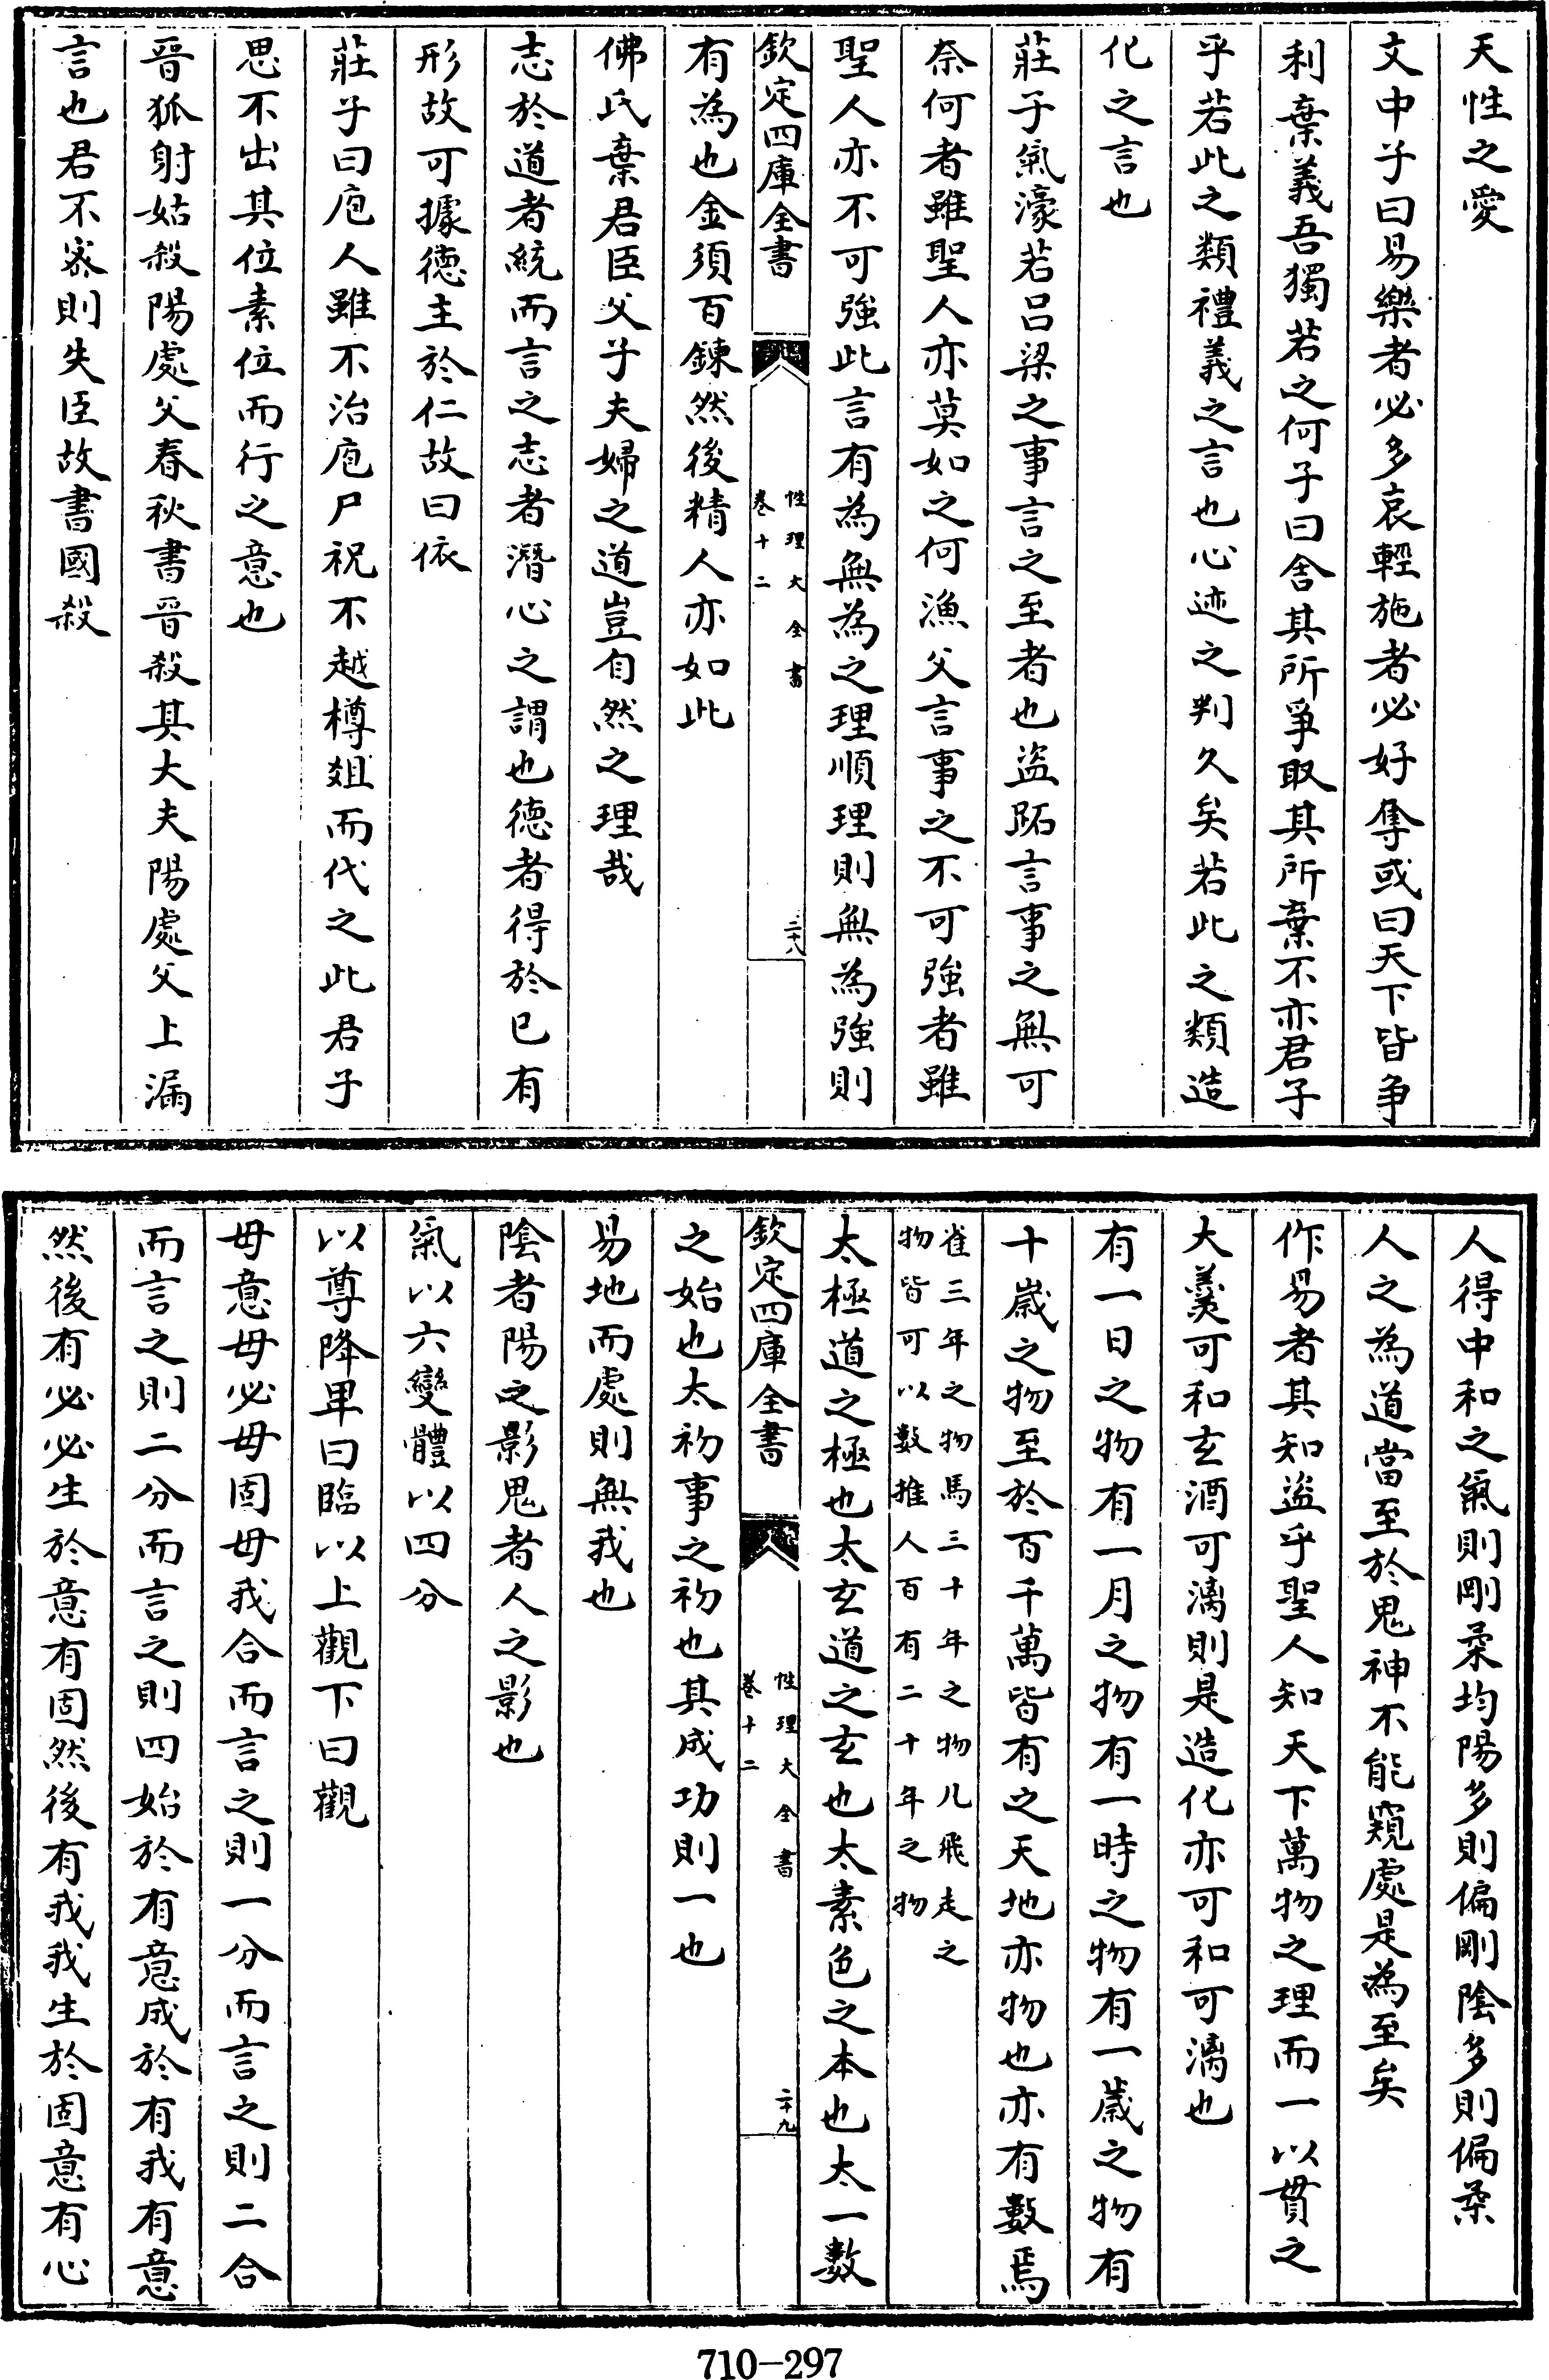 天性之愛
文中子曰易樂者必多哀輕施者必好奪或曰天下皆争
利棄義吾獨若之何子曰舍其所爭取其所棄不亦君子
乎若此之類禮義之言也心迹之判久矣若此之類造
化之言也
莊子氣濠若呂梁之事言之至者也盜跖言事之無可
奈何者雖聖人亦莫如之何漁父言事之不可強者雖
聖人亦不可強此言有為無為之理順理則無為強則
欽定四庫全書
性理大全書
卷十二
二十八
有為也金須百鍊然後精人亦如此
佛氏棄君臣父子夫婦之道豈自然之理哉
志於道者統而言之志者潛心之謂也德者得於已有
形故可據德主於仁故曰依
莊子曰庖人雖不治庖尸祝不越樽俎而代之此君子
思不出其位素位而行之意也
晉狐射姑殺陽處父春秋書晉殺其大夫陽處父上漏
言也君不宻則失臣故書國殺
人得中和之氣則剛柔均陽多則偏剛陰多則偏柔
人之為道當至於鬼神不能窺處是為至矣
作易者其知盜乎聖人知天下萬物之理而一以貫之
大羮可和玄酒可漓則是造化亦可和可漓也
有一日之物有一月之物有一時之物有一歲之物有
十歲之物至於百千萬皆有之天地亦物也亦有數焉
雀三年之物馬三十年之物凡飛走之
物皆可以數推人百有二十年之物
太極道之極也太玄道之玄也太素色之本也太一數
欽定四庫全書
性理大全書
卷十二
二十九
之始也太初事之初也其成功則一也
易地而處則無我也
陰者陽之影鬼者人之影也
氣以六變體以四分
以尊降卑曰臨以上觀下曰觀
毋意毋必毋固毋我合而言之則一分而言之則二合
而言之則二分而言之則四始於有意成於有我有意
然後有必必生於意有固然後有我我生於固意有心
710-297